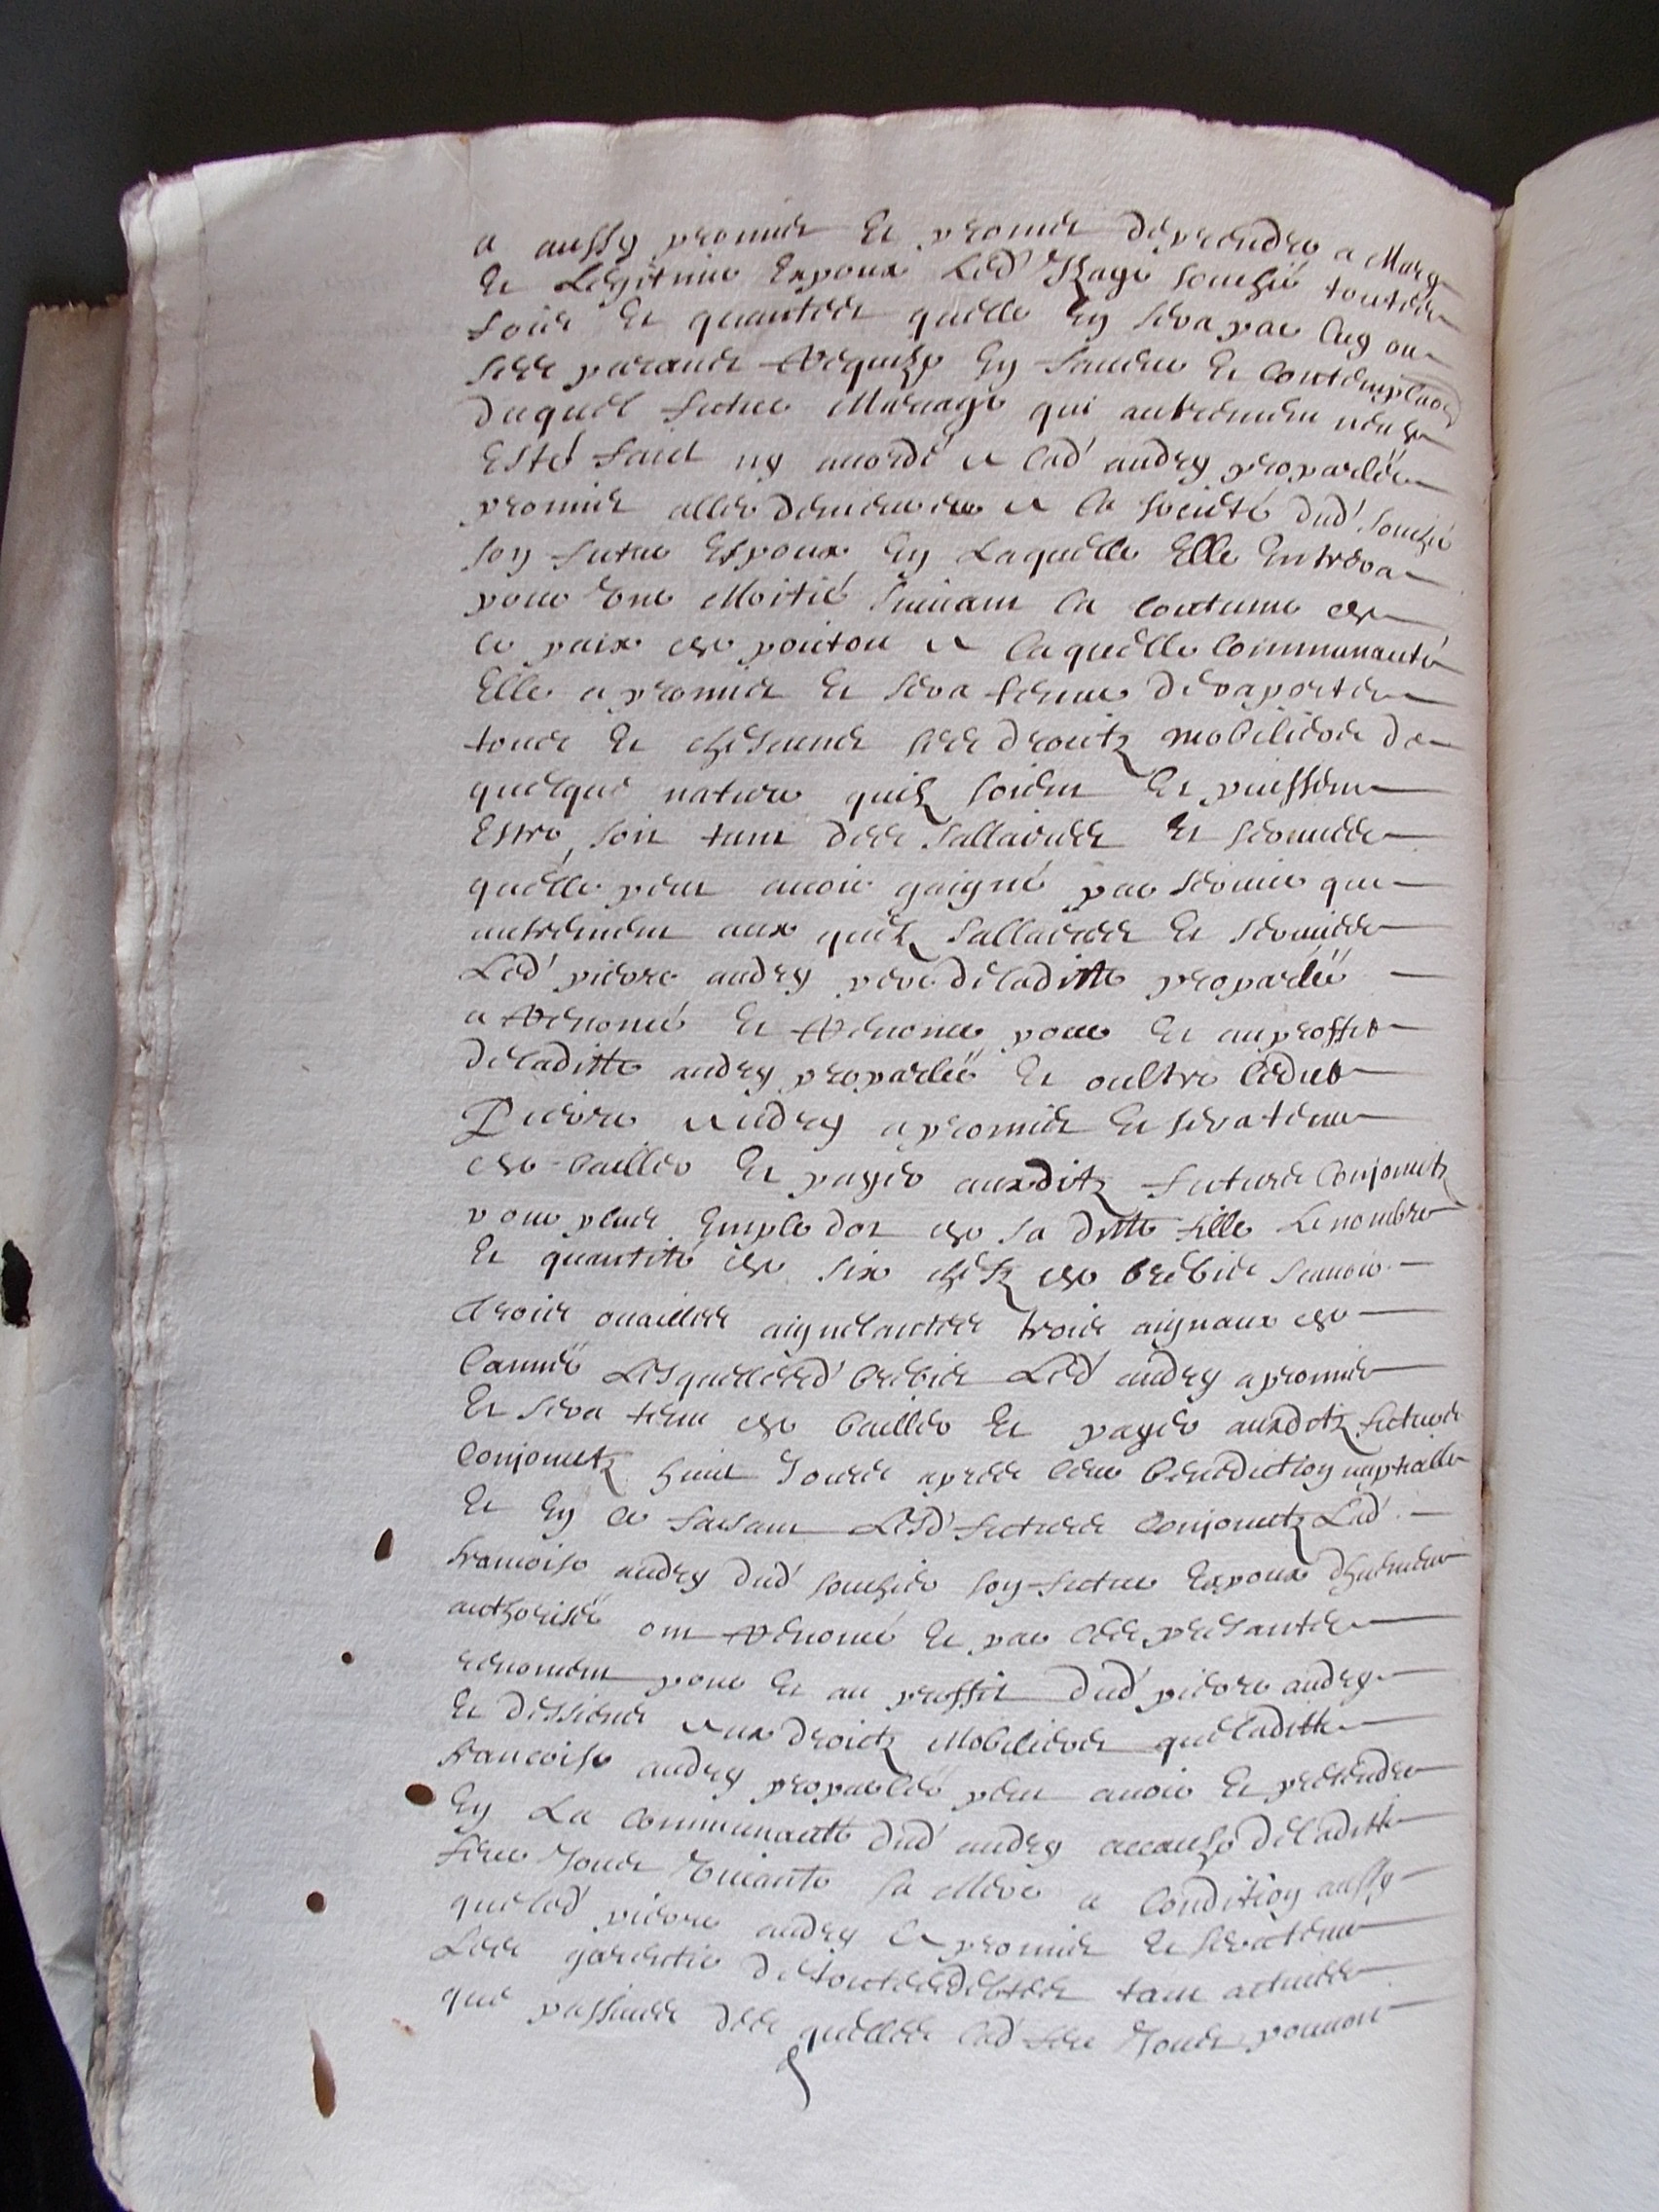 a aussy promis et promet de prendre a mary
et Legitime Expoux Led' Izage Souchié touttes
fois et quanttes quelle en sera par luy ou
ses parants Requize en faveur et contemplaon
duquel futur Mariage qui autrement neust
Esté faict ny acordé a lad' audry proparlée
promis aller demeurer a la societé dud' Souchié
son futur Espoux en Laquelle Elle Entrera
pour une Moitié suivant la coutume de
ce paix de poictou a laquelle Communauté
Elle a promis et sera tenue de raporter
tous et chescuns ses droitz mobiliers de
quelque nature quilz soient et puissent
Estre, soit tant des sallaires et services
quelle peut avoir gaigné par service que
autrement aux quelz sallaires et services
Led' pierre audry pere de laditte proparlée
a Renoncé et Renonce pour et au proffit
de laditte audry proparlée et oultre ledit
Pierre audry a promis et sera tenu
de bailler et payer ausditz futurs Conjoinctz
pour plus Emple dot de sa ditte fille Le nombre
et quantité de six chefz de brebis scavoir
trois ouailles aignelantes trois aignaux de
lannée Lesquelles d' brebis Led' audry a promis
et sera tenu de bailler et payer ausditz futurs
Conjoinctz huict Jours apres leur benediction nuptialle
et en ce faisant Lesd' futurs Conjoinctz Lad'
francoise audry dud' souchier son futur Expoux dhuement
authorisée ont Renoncé et par ces presantes
renoncent pour et au proffit dud' pierre audry
et des siens aux droictz Mobiliers que laditte
francoise audry proparlée peut avoir et pretendre
en La Communautté dud' audry a cause de laditte
feue Jouis vivante sa Mere a Condition aussy
que led' pierre audry a promis et sera tenu
Les garentir de touttes debtes tant actives
que passives des quelles lad' feue Jouis pouvoit